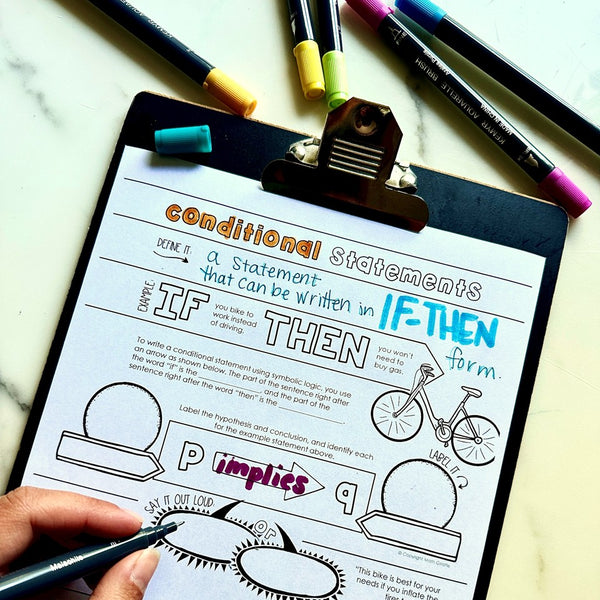 conditional statements
DEFINE IT:
a statement
that can be written in IF-THEN
form.
EXAMPLE:
IF you bike to
work instead
of driving.
THEN you won't
need to
buy gas.
To write a conditional statement using symbolic logic, you use
an arrow as shown below. The part of the sentence right after
the word "if" is the ____________ and the part of the
sentence right after the word "then" is the ____________.
LABEL IT
Label the hypothesis and conclusion, and identify each
for the example statement above.
P implies q
© Copyright Math Giraffe
SAY IT OUT LOUD:
OR
"This bike is best for your
needs if you inflate the
tires
KEMYR AQUARELLE BRUSH
Malachite